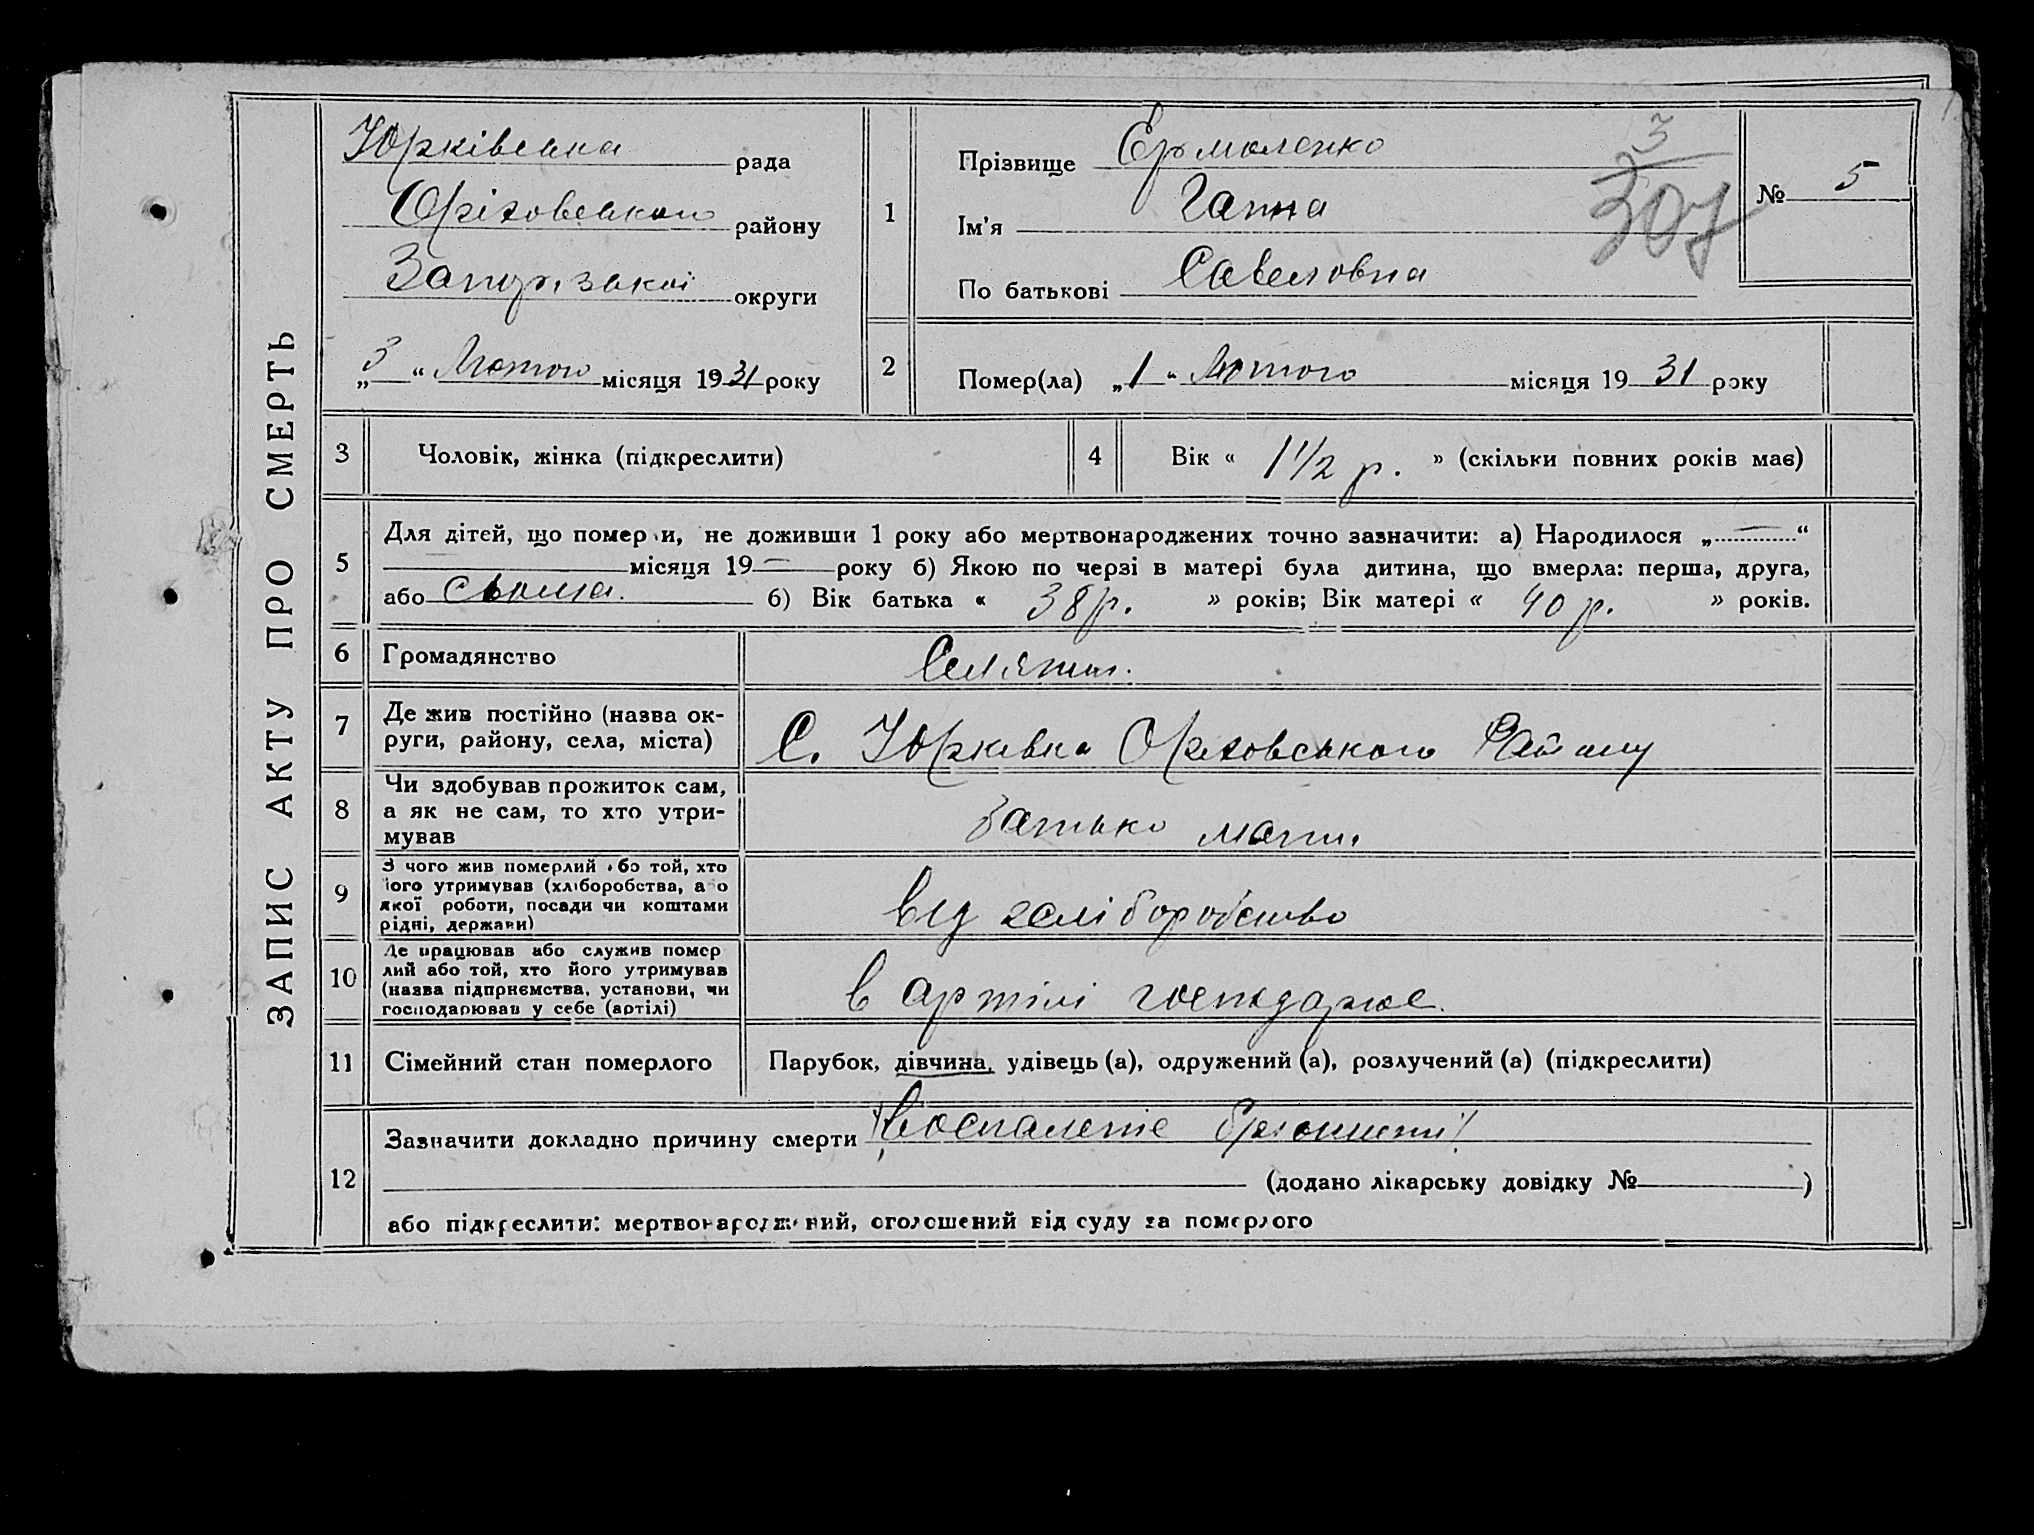 ЗАПИС АКТУ ПРО СМЕРТЬ
Юрківська рада
Оріховського району
Запорізької округи
„3“ Лютого місяця 1931 року
1
Прізвище Ермоленко
Ім'я Ганна
По батькові Савеловна
3
307
№ 5
2
Помер(ла) „1“ Лютого місяця 1931 року
3
Чоловік, жінка (підкреслити)
4
Вік « 1 1/2 р. » (скільки повних років має)
5
Для дітей, що померли, не доживши 1 року або мертвонароджених точно зазначити: а) Народилося „—“
місяця 19— року б) Якою по черзі в матері була дитина, що вмерла: перша, друга,
або сьома. б) Вік батька « 38 р. » років; Вік матері « 40 р. » років.
6
Громадянство
Селяни.
7
Де жив постійно (назва ок-
руги, району, села, міста)
С. Юрківка Оріховського Району
8
Чи здобував прожиток сам,
а як не сам, то хто утри-
мував
батько мати
9
З чого жив померлий або той, хто
його утримував (хліборобства, або
якої роботи, посади чи коштами
рідні, держави)
від хліборобство
10
Де працював або служив помер
лий або той, хто його утримував
(назва підприємства, установи, чи
господарював у себе (артілі)
в артілі господарює.
11
Сімейний стан померлого
Парубок, дівчина, удівець (а), одружений (а), розлучений (а) (підкреслити)
12
Зазначити докладно причину смерти Воспаленіе
(додано лікарську довідку № )
або підкреслити: мертвонароджений, оголошений від суду за померлого